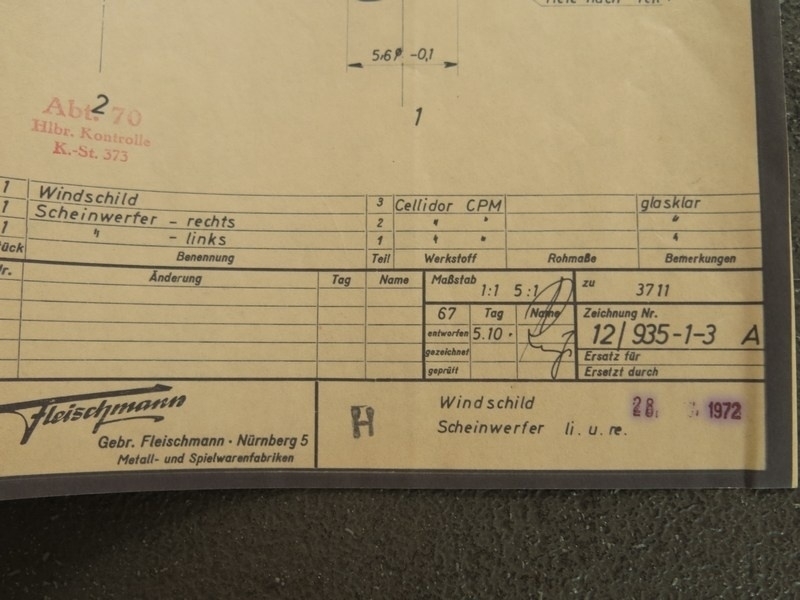 5,6 -0,1
2
1
Abt. 70
Hlbr. Kontrolle
K.-St. 373
1 Windschild 3 Cellidor CPM glasklar
1 Scheinwerfer - rechts 2 " " "
1 " - links 1 " " "
Stück Benennung Teil Werkstoff Rohmaße Bemerkungen
Nr. Änderung Tag Name
Maßstab 1:1 5:1
zu 3711
67 Tag Name
entworfen 5.10.
gezeichnet
geprüft
Zeichnung Nr.
12/935-1-3 A
Ersatz für
Ersetzt durch
Fleischmann
Gebr. Fleischmann · Nürnberg 5
Metall- und Spielwarenfabriken
H
Windschild
Scheinwerfer li. u. re.
28. 1972